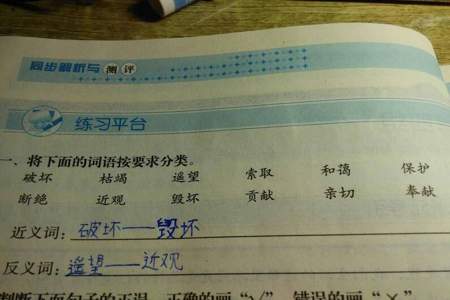 同步解析与测评
练习平台
一、将下面的词语按要求分类。
破坏 枯竭 遥望 索取 和蔼 保护
断绝 近观 毁坏 贡献 亲切 奉献
近义词：破坏——毁坏
反义词：遥望——近观
判断下面句子的正误，正确的画“√”，错误的画“×”